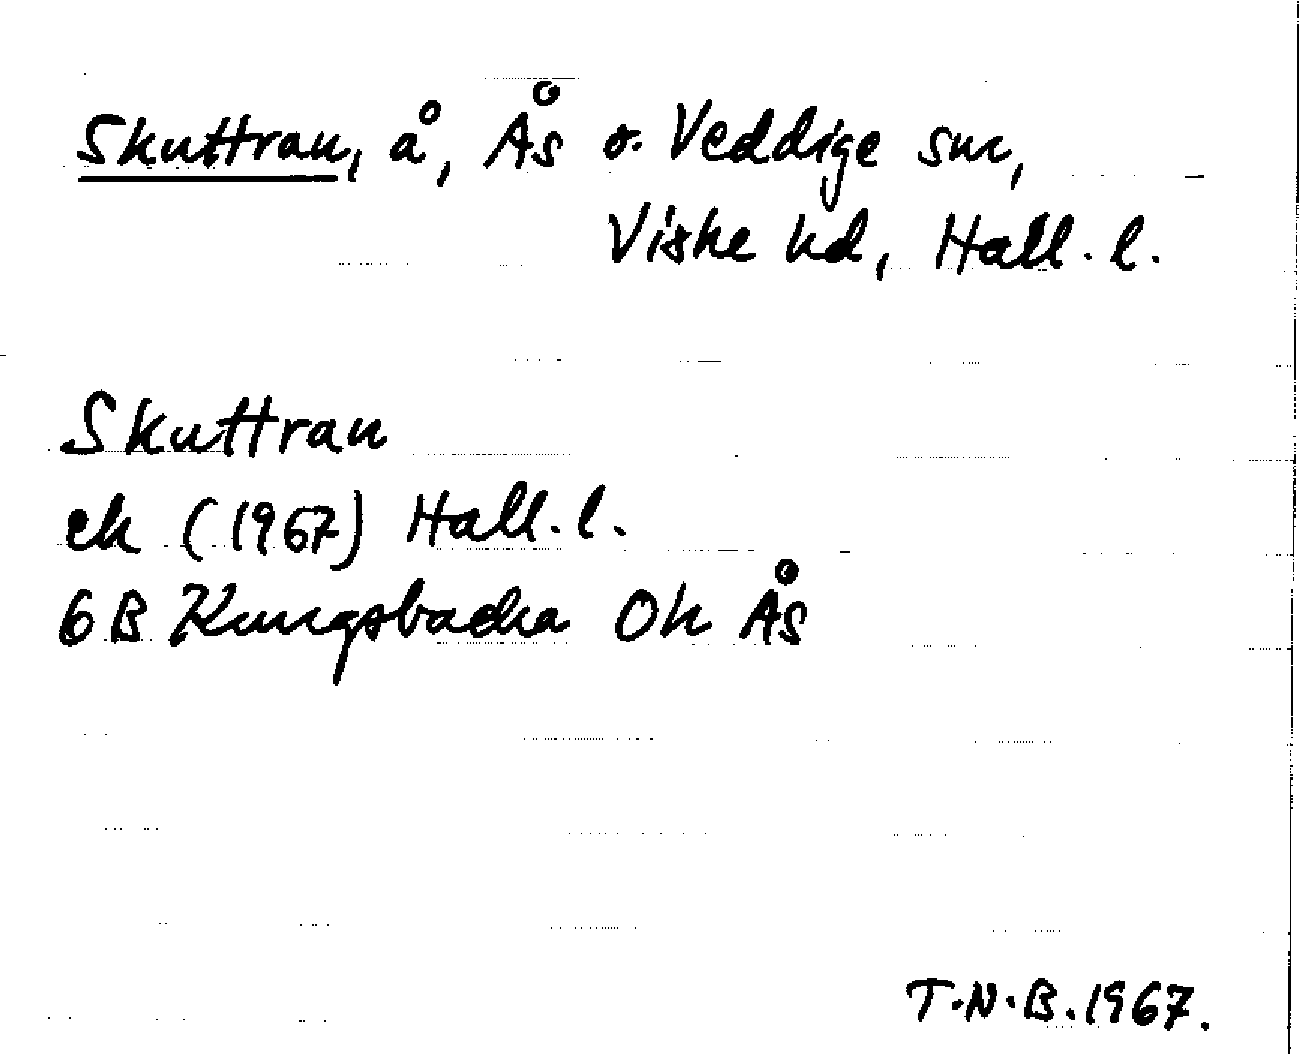 Skuttran, å, Ås o. Veddige snr,
Viske hd, Hall. l.
Skuttran
ek (1967) Hall. l.
6B Kungsbacka Ok Ås
T.N.B. 1967.